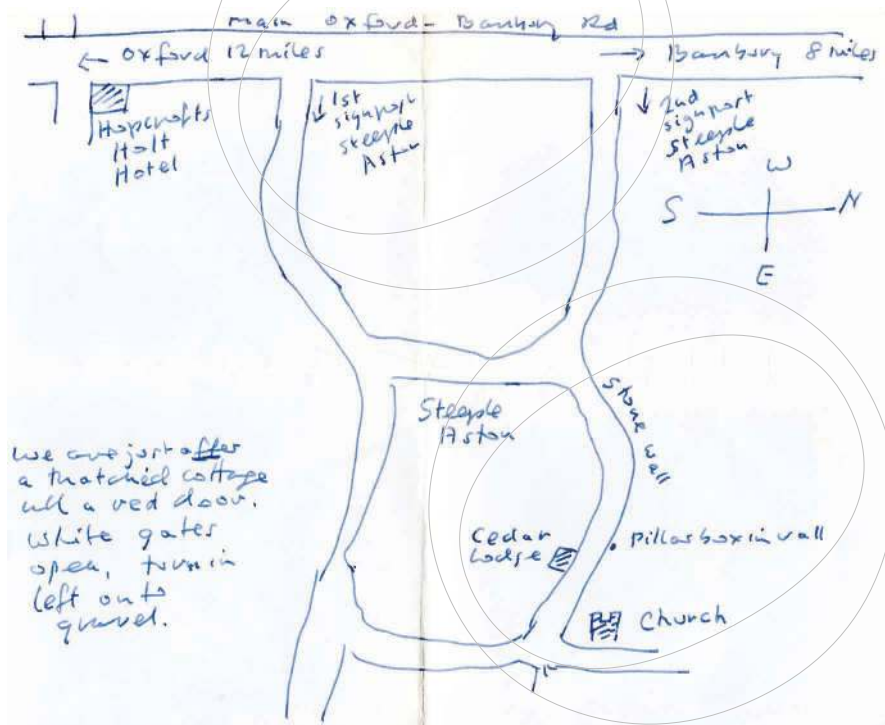 main Oxford - Banbury Rd
← Oxford 12 miles
→ Banbury 8 miles
Hopcrofts
Holt
Hotel
↓ 1st
signpost
Steeple
Aston
↓ 2nd
signpost
Steeple
Aston
W
S
N
E
Steeple
Aston
Stone wall
we are just after
a thatched cottage
with a red door.
White gates
open, turn in
left onto
gravel.
Cedar
Lodge
Pillarbox in wall
Church